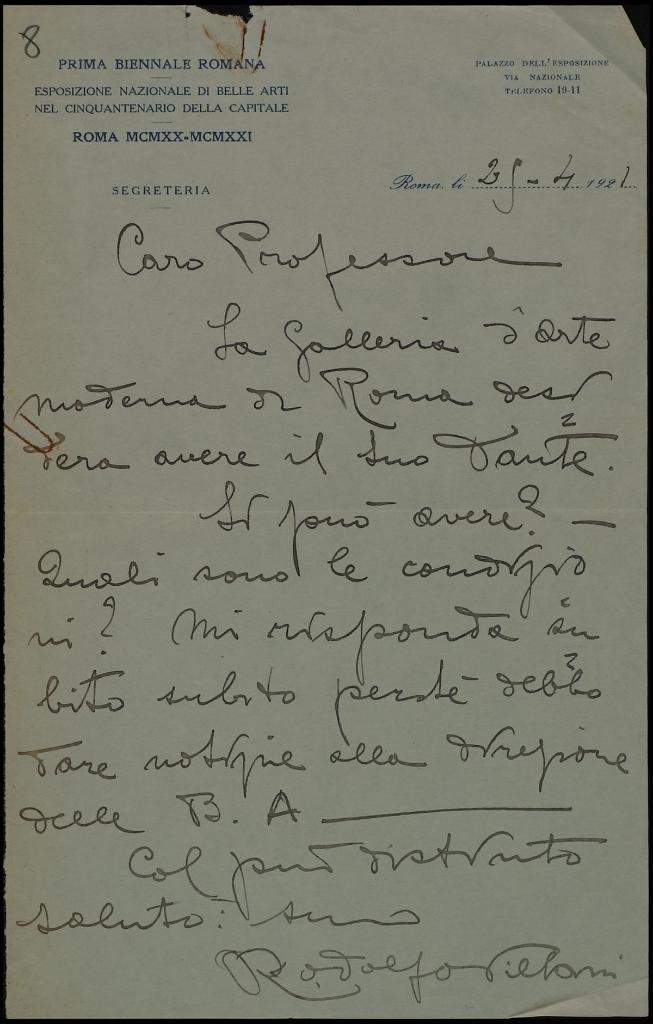 8
PRIMA BIENNALE ROMANA
ESPOSIZIONE NAZIONALE DI BELLE ARTI
NEL CINQUANTENARIO DELLA CAPITALE
ROMA MCMXX-MCMXXI
SEGRETERIA
PALAZZO DELL'ESPOSIZIONE
VIA NAZIONALE
TELEFONO 19-11
Roma. li 25-4 1921
Caro Professore
La Galleria d'arte
moderna di Roma desi
dera avere il suo Dante.
Si può avere? —
Quali sono le condizio
ni? Mi risponda su
bito subito perchè debbo
dare notizie alla direzione
delle B. A —
Col più distinto
saluto: suo
Rodolfo Villani